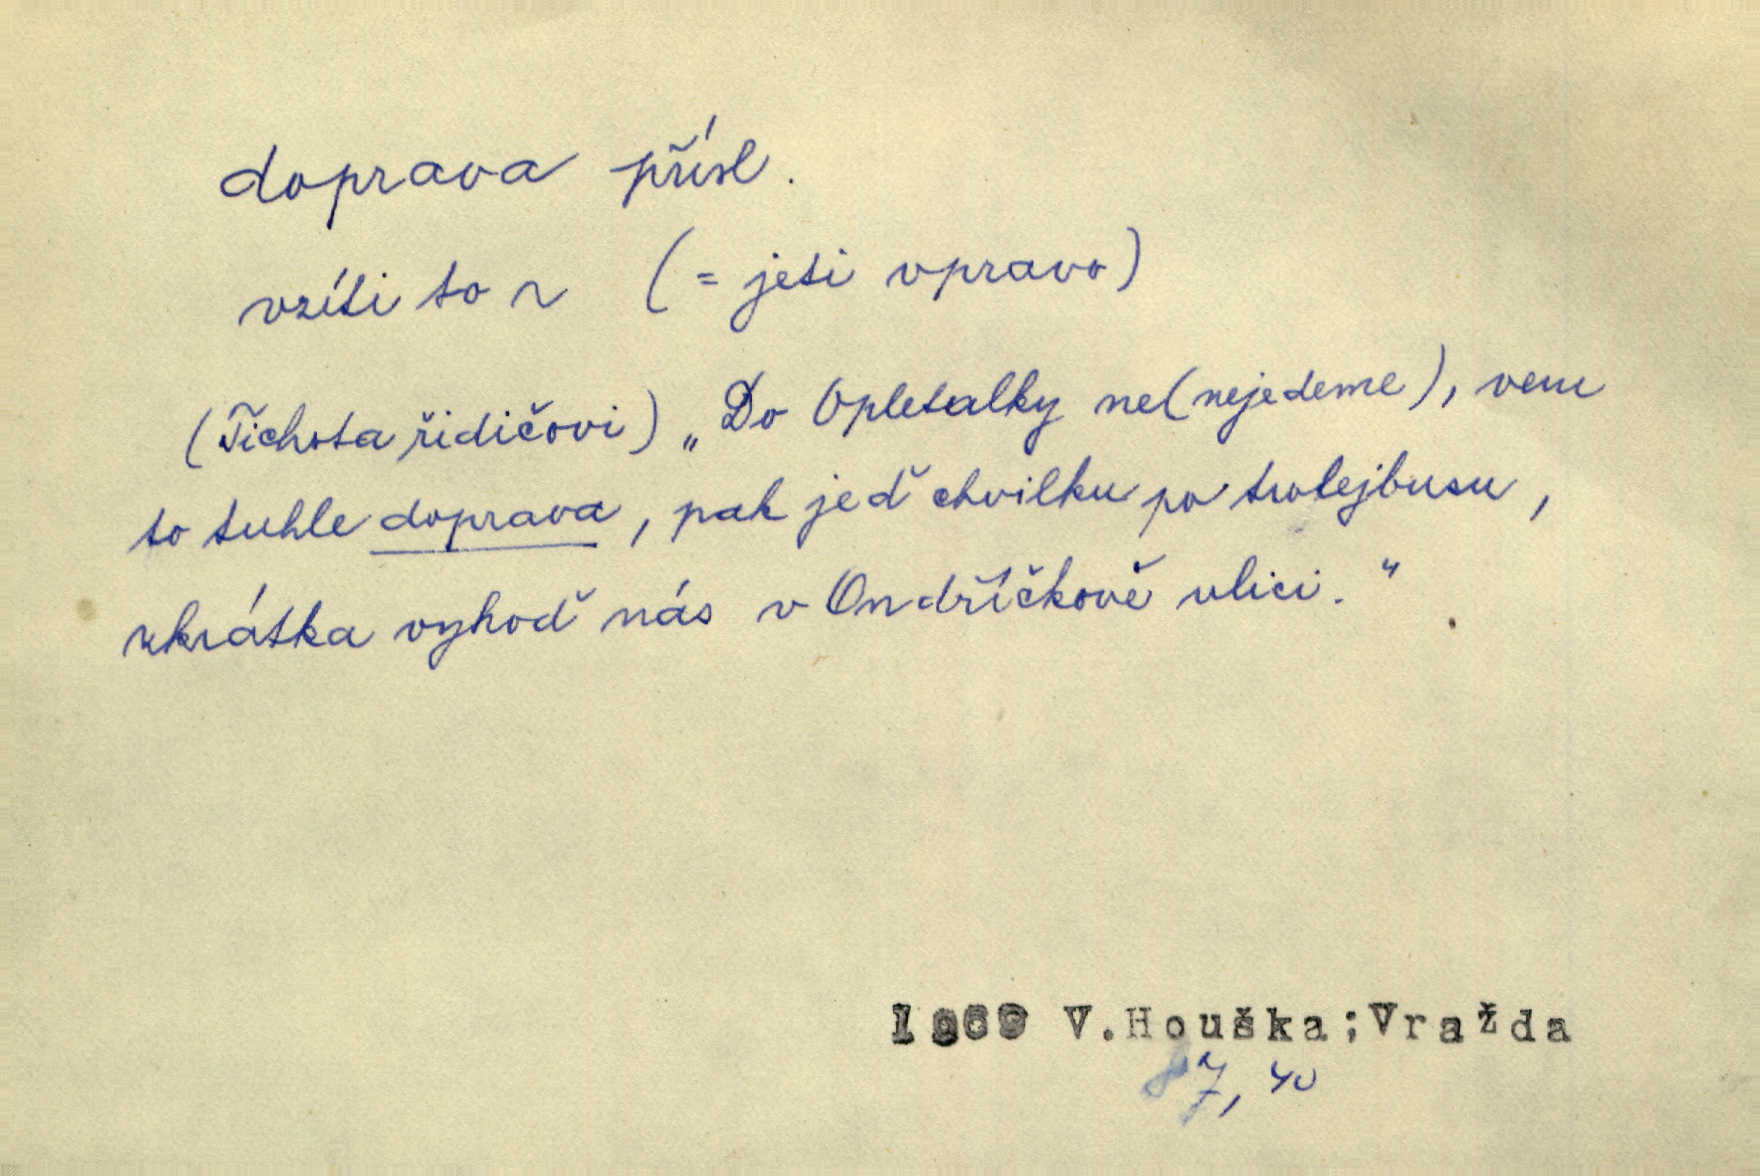 doprava přísl.
vzíti to ~ (= jeti vpravo)
(Tichota řidičovi) „Do Opletalky ne (nejedeme), vem
to tuhle doprava, pak jeď chvilku po trolejbusu,
zkrátka vyhoď nás v Ondříčkově ulici."
1969 V.Houška;Vražda
87, 40